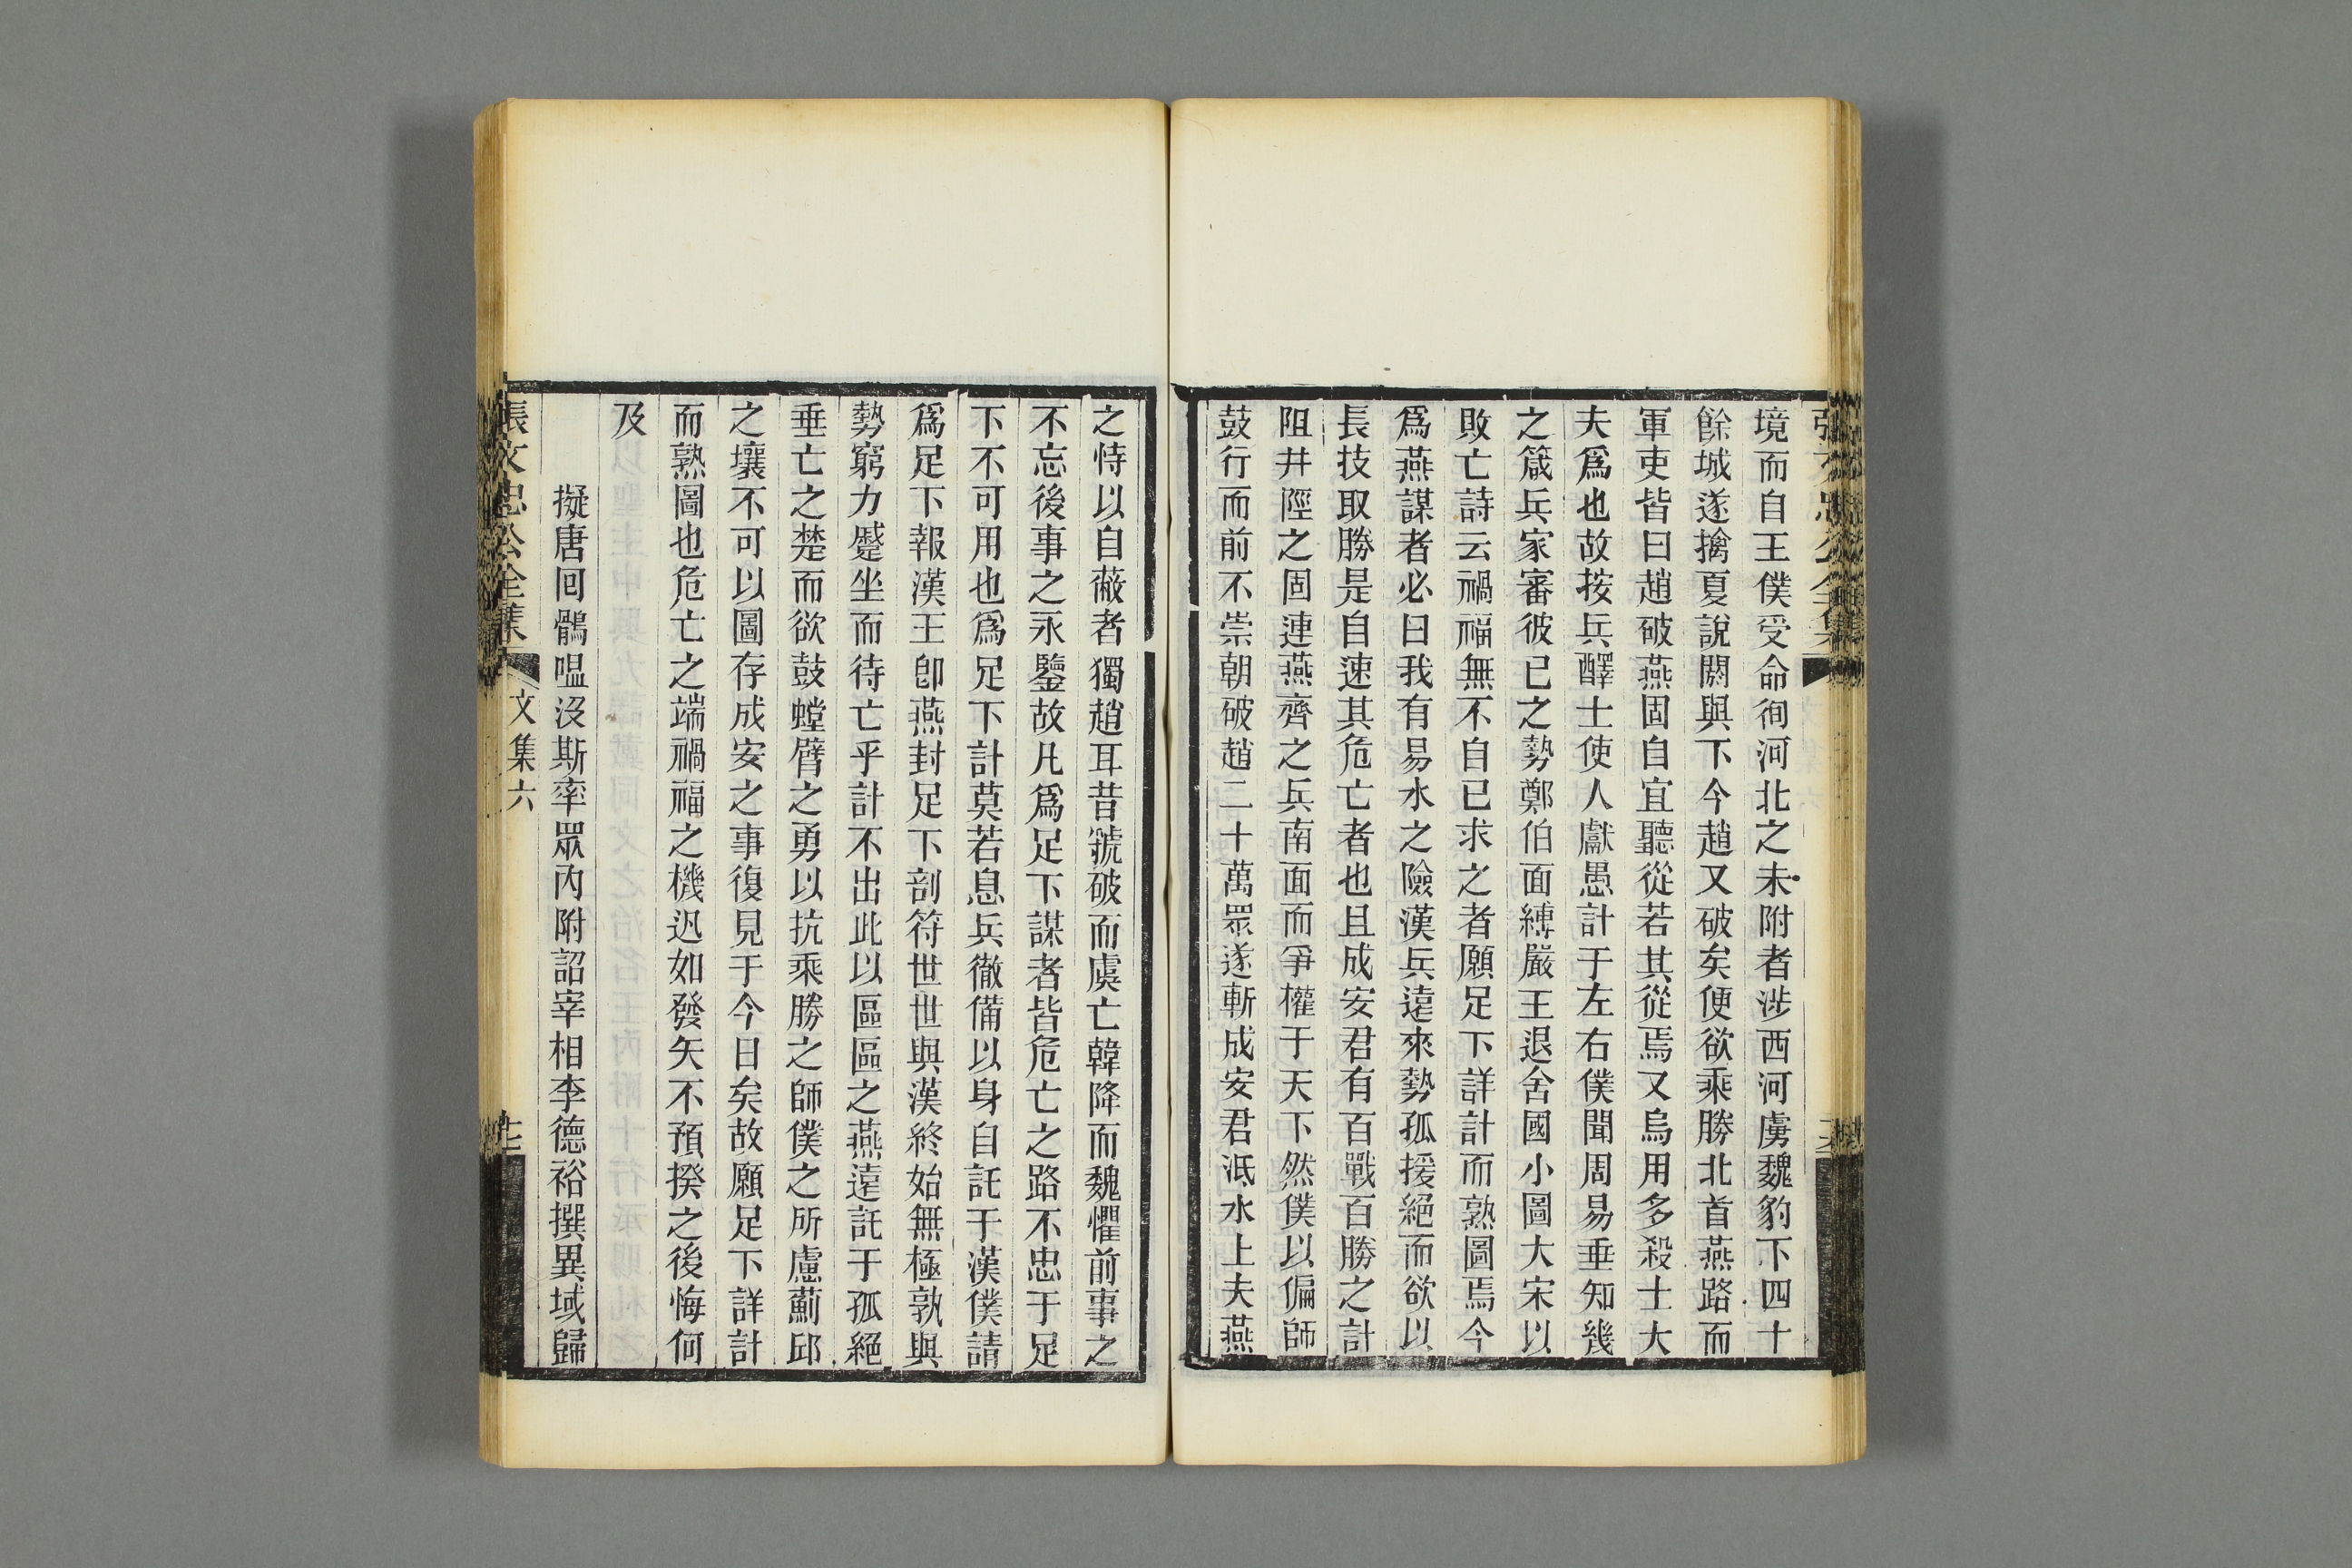 境而自王僕受命徇河北之未附者涉西河虜魏豹下四十
餘城遂擒夏說閼與下今趙又破矣便欲乘勝北首燕路而
軍吏皆曰趙破燕固自宜聽從若其從焉又烏用多殺士大
夫爲也故按兵醳士使人獻愚計于左右僕聞周易垂知幾
之箴兵家審彼已之勢鄭伯面縛嚴王退舍國小圖大宋以
敗亡詩云禍福無不自已求之者願足下詳計而熟圖焉今
爲燕謀者必曰我有易水之險漢兵遠來勢孤援絕而欲以
長技取勝是自速其危亡者也且成安君有百戰百勝之計
阻井陘之固連燕齊之兵南面而爭權于天下然僕以偏師
鼓行而前不崇朝破趙二十萬眾遂斬成安君泜水上夫燕
之恃以自蔽者獨趙耳昔虢破而虞亡韓降而魏懼前事之
不忘後事之永鑒故凡爲足下謀者皆危亡之路不忠于足
下不可用也爲足下計莫若息兵徹備以身自託于漢僕請
爲足下報漢王卽燕封足下剖符世世與漢終始無極孰與
勢窮力蹙坐而待亡乎計不出此以區區之燕遠託于孤絕
垂亡之楚而欲鼓螳臂之勇以抗乘勝之師僕之所慮薊邱
之壤不可以圖存成安之事復見于今日矣故願足下詳計
而熟圖也危亡之端禍福之機迅如發矢不預揆之後悔何
及
擬唐回鶻嗢沒斯率眾內附詔宰相李德裕撰異域歸
張文忠公全集
文集六